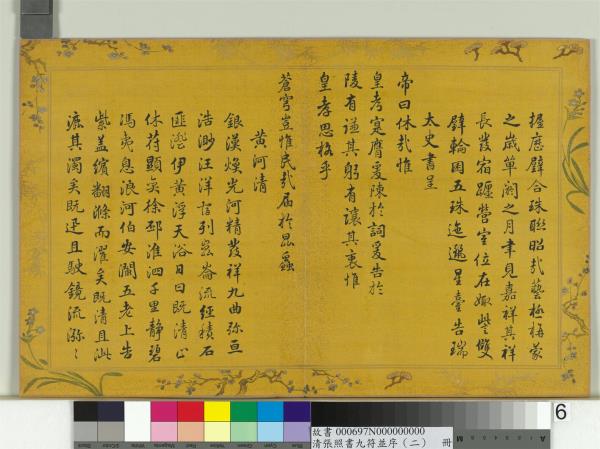 握歷璧合珠聯昭哉藝極旃蒙
之歲單閼之月聿見嘉祥其祥
長發宿躔營室位在娵訾雙
璧輪囷五珠迤邐星臺告瑞
太史書呈
帝曰休哉惟
皇考寔膺爰陳於詞爰告於
陵有謙其躬有讓其衷惟
皇孝思格乎
蒼穹豈惟民哉屆於昆蟲
黃河清
銀漢煥光河精發祥九曲弥亘
浩渺汪洋 列崑崙流經積石
匪 伊黃浮天浴日曰既清止
休符顯寔徐邳淮泗千里靜碧
馮夷息浪河伯安瀾五老上告
紫盖繽翻滌而濯矣既清且泚
漉其濁矣既迅且駛鏡流瀰〻
6
Black 3/Color White Magenta Red Yellow Green Cyan Blue
故書 000697N000000000
清張照書九符並序（二） 冊